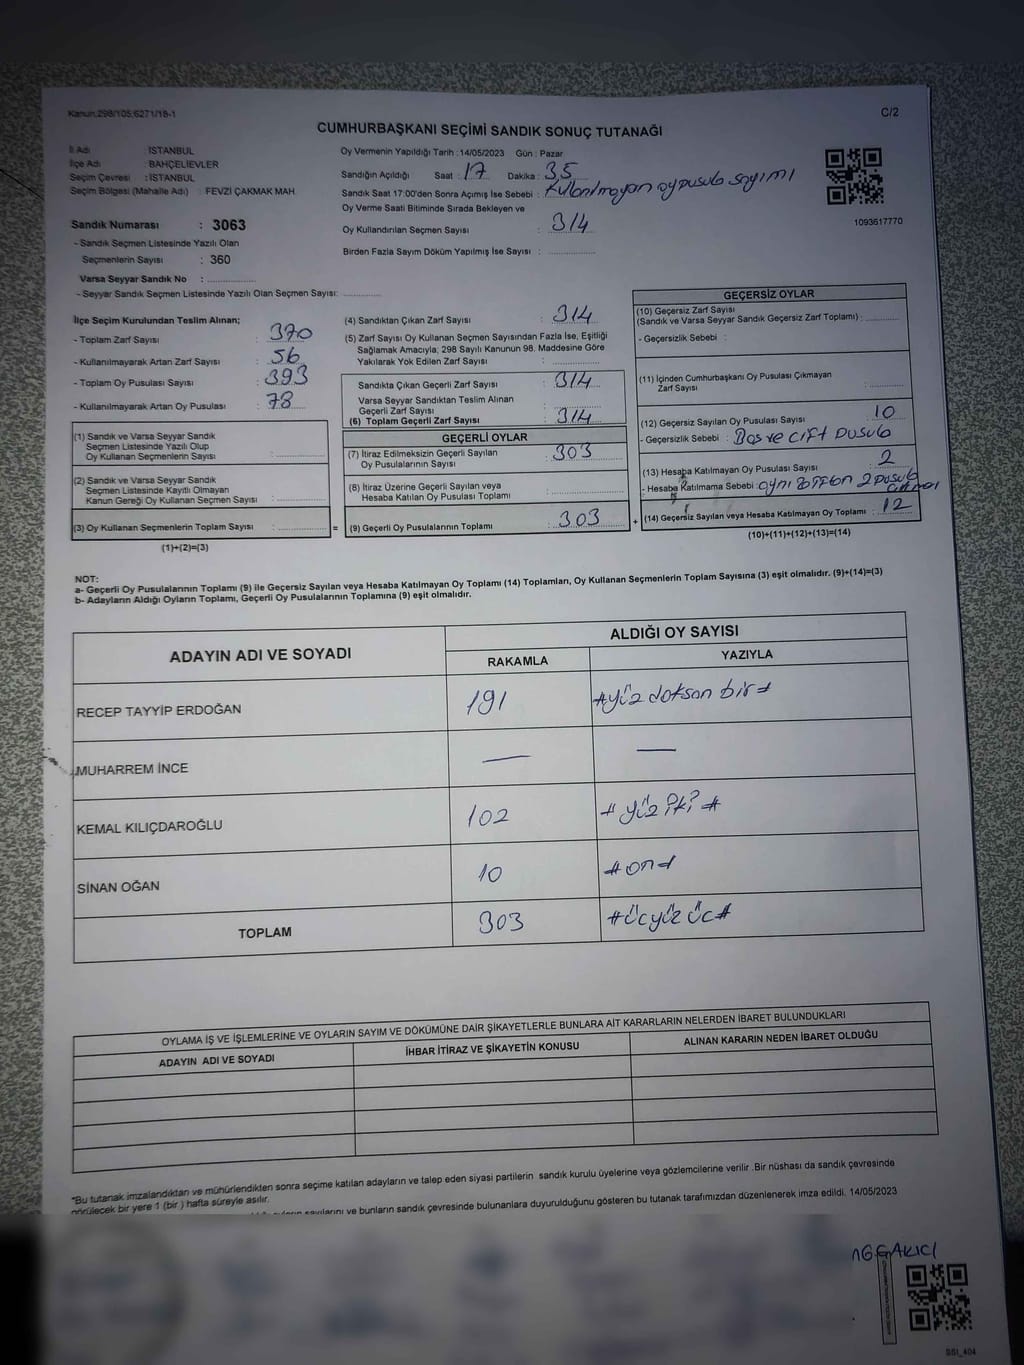 Kanun:298/105;6271/18-1
C/2
CUMHURBAŞKANI SEÇİMİ SANDIK SONUÇ TUTANAĞI
İl Adı : İSTANBUL
İlçe Adı : BAHÇELİEVLER
Seçim Çevresi : İSTANBUL
Seçim Bölgesi (Mahalle Adı) : FEVZİ ÇAKMAK MAH.
Sandık Numarası : 3063
- Sandık Seçmen Listesinde Yazılı Olan
Seçmenlerin Sayısı : 360
Varsa Seyyar Sandık No :
- Seyyar Sandık Seçmen Listesinde Yazılı Olan Seçmen Sayısı:
Oy Vermenin Yapıldığı Tarih : 14/05/2023 Gün : Pazar
Sandığın Açıldığı Saat : 17 Dakika : 35
Sandık Saat 17:00'den Sonra Açımış İse Sebebi : Kullanılmayan oy pusula sayımı
Oy Verme Saati Bitiminde Sırada Bekleyen ve
Oy Kullandırılan Seçmen Sayısı : 314
Birden Fazla Sayım Döküm Yapılmış İse Sayısı :
1093617770
İlçe Seçim Kurulundan Teslim Alınan;
- Toplam Zarf Sayısı : 370
- Kullanılmayarak Artan Zarf Sayısı : 56
- Toplam Oy Pusulası Sayısı : 393
- Kullanılmayarak Artan Oy Pusulası : 78
(1) Sandık ve Varsa Seyyar Sandık
Seçmen Listesinde Yazılı Olup
Oy Kullanan Seçmenlerin Sayısı :
(2) Sandık ve Varsa Seyyar Sandık
Seçmen Listesinde Kayıtlı Olmayan
Kanun Gereği Oy Kullanan Seçmen Sayısı :
(3) Oy Kullanan Seçmenlerin Toplam Sayısı : =
(1)+(2)=(3)
(4) Sandıktan Çıkan Zarf Sayısı : 314
(5) Zarf Sayısı Oy Kullanan Seçmen Sayısından Fazla İse, Eşitliği
Sağlamak Amacıyla; 298 Sayılı Kanunun 98. Maddesine Göre
Yakılarak Yok Edilen Zarf Sayısı :
Sandıkta Çıkan Geçerli Zarf Sayısı : 314
Varsa Seyyar Sandıktan Teslim Alınan
Geçerli Zarf Sayısı :
(6) Toplam Geçerli Zarf Sayısı : 314
GEÇERLİ OYLAR
(7) İtiraz Edilmeksizin Geçerli Sayılan
Oy Pusulalarının Sayısı : 303
(8) İtiraz Üzerine Geçerli Sayılan veya
Hesaba Katılan Oy Pusulası Toplamı :
(9) Geçerli Oy Pusulalarının Toplamı : 303 +
GEÇERSİZ OYLAR
(10) Geçersiz Zarf Sayısı
(Sandık ve Varsa Seyyar Sandık Geçersiz Zarf Toplamı) :
- Geçersizlik Sebebi :
(11) İçinden Cumhurbaşkanı Oy Pusulası Çıkmayan
Zarf Sayısı :
(12) Geçersiz Sayılan Oy Pusulası Sayısı : 10
- Geçersizlik Sebebi : Boş ve çift pusula
(13) Hesaba Katılmayan Oy Pusulası Sayısı : 2
- Hesaba Katılmama Sebebi : aynı zarftan 2 pusula çıkması
(14) Geçersiz Sayılan veya Hesaba Katılmayan Oy Toplamı : 12
(10)+(11)+(12)+(13)=(14)
NOT:
a- Geçerli Oy Pusulalarının Toplamı (9) ile Geçersiz Sayılan veya Hesaba Katılmayan Oy Toplamı (14) Toplamları, Oy Kullanan Seçmenlerin Toplam Sayısına (3) eşit olmalıdır. (9)+(14)=(3)
b- Adayların Aldığı Oyların Toplamı, Geçerli Oy Pusulalarının Toplamına (9) eşit olmalıdır.
ADAYIN ADI VE SOYADI
ALDIĞI OY SAYISI
RAKAMLA YAZIYLA
RECEP TAYYİP ERDOĞAN 191 #yüz doksan bir#
MUHARREM İNCE — —
KEMAL KILIÇDAROĞLU 102 #yüz iki#
SİNAN OĞAN 10 #on#
TOPLAM 303 #üçyüz üç#
OYLAMA İŞ VE İŞLEMLERİNE VE OYLARIN SAYIM VE DÖKÜMÜNE DAİR ŞİKAYETLERLE BUNLARA AİT KARARLARIN NELERDEN İBARET BULUNDUKLARI
ADAYIN ADI VE SOYADI İHBAR İTİRAZ VE ŞİKAYETİN KONUSU ALINAN KARARIN NEDEN İBARET OLDUĞU
*Bu tutanak imzalandıktan ve mühürlendikten sonra seçime katılan adayların ve talep eden siyasi partilerin sandık kurulu üyelerine veya gözlemcilerine verilir .Bir nüshası da sandık çevresinde
görülecek bir yere 1 (bir ) hafta süreyle asılır.
sayılarını ve bunların sandık çevresinde bulunanlara duyurulduğunu gösteren bu tutanak tarafımızdan düzenlenerek imza edildi. 14/05/2023
SSI_404